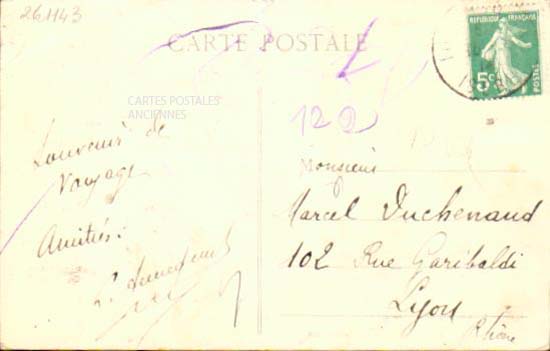 261143
CARTE POSTALE
CARTES POSTALES
ANCIENNES
REPUBLIQUE FRANÇAISE
5c
POSTES
120
Souvenir de
Voyage
Amitiés:
Monsieur
Marcel Duchenaud
102 Rue Garibaldi
Lyon
Rhône